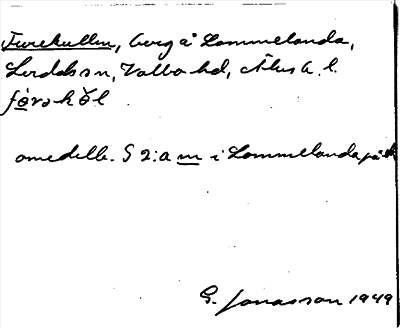 Furekullen, berg å Lommelanda,
Lerdals sn, Valbo hd, Älvsb. l.
fórəkŏl
omedelb. S 2:a m i Lommelanda på
G. Jonasson 1949